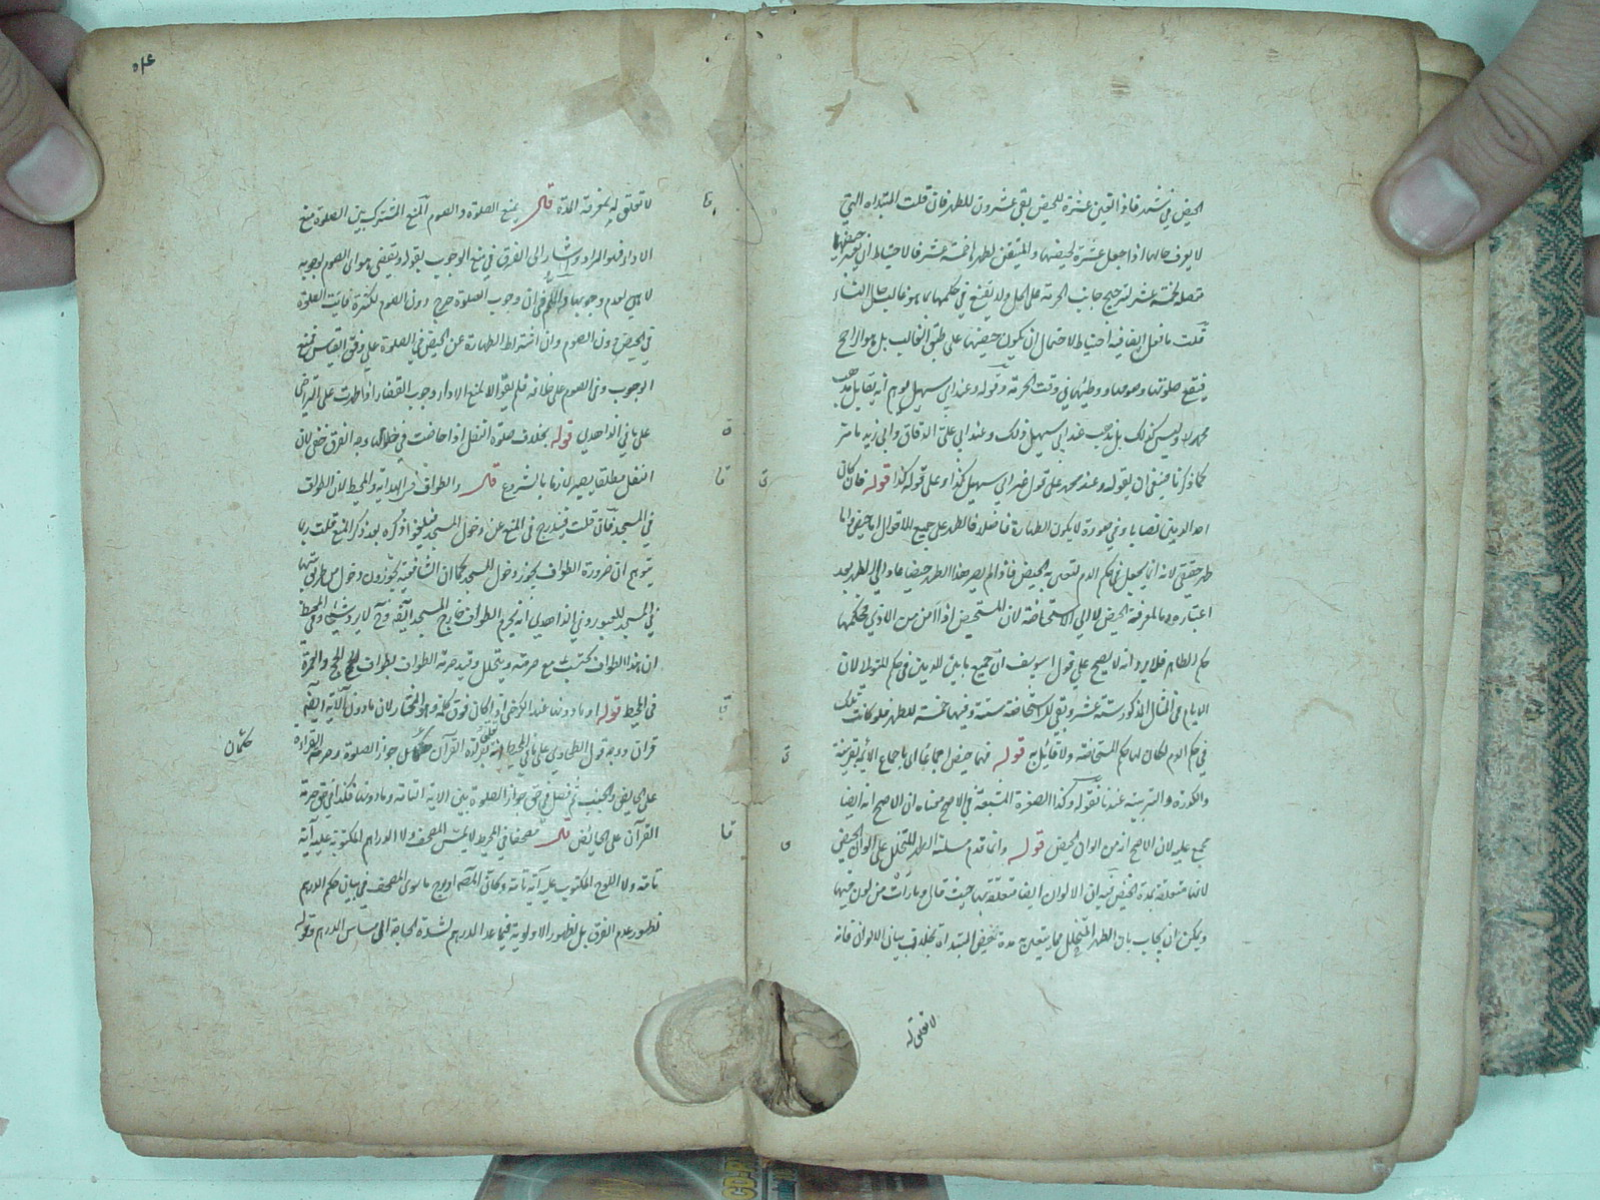 الحيض في شهر فاذا تعين عشرة للحيض بقى عشرون للطهر فان قلت المبتداة التي
لا يعرف حالها اذا جعل عشرة لحيضها والمتيقن لطهرها خمسة عشر فالاحتياط ان
متصلة بخمسة عشر لترجيح جانب الحرمة على الحل ولا يقنع في حكمها بما هو غالب حال النساء
قلت ما فعل ايضا فيه احتياط لاحتمال ان يكون حيضها على طبق الغالب بل هو الراجح
فيقع صلوتها وصومها ووطئها في وقت الحرمة وقوله وعند ابي سهيل يوهم انه يقابل مذهب
محمد وليس كذلك بل مذهب عند ابي سهيل ذلك وعند ابي علي الدقاق وابي زيد ما مر
كما ذكرنا فينبغي ان يقوله وعند محمد على قول غير ابي سهيل كذا وعلى قوله كذا قوله فان كان
احد الدمين نصابا وفي صورة لا يكون الطهارة فاصلا فالطهر على جميع الاقوال اما حيض واما
طهر حقيقي لانه انما يجعل في حكم الدم لتعدي به الحيض فاذا لم يصر هذا الطهر حيضا عاد الى الطهر بعد
اعتباره دما لمعرفة الحيض لا الى الاستحاضة لان المستحيض اذا امن من الاذى فحكمها
حكم الطاهر فلا يرد انه لا يصح على قول ابي يوسف ان جميع ما بين الدمين في حكم المتوالي لان
الايام في المثال المذكور ستة عشر وبقى للاستحاضة ستة وفيها خمسة للطهر فلو كانت تلك
في حكم الدم لكان لها حكم المستحاضة ولا قائل به قوله فهما حيض اجماعا اي باجماع الائمة بقرينة
والكدرة والتربية عندنا فقوله وكذا الصفرة المشبعة في الاصح معناه ان الاصح انه ايضا
مجمع عليه لان الاصح انه من الوان الحيض قوله وانما قدم مسئلة الطهر المتخلل على الوان الحيض
لانها متعلقة بمدة الحيض فيه ان الالوان ايضا متعلقة بها حيث قال وما رأت من لون فيها
ويمكن ان يجاب بان الطهر المتخلل مما يتعين به مدة حيض المبتداة بخلاف بيان الالوان فانه
لا تعلق له
لا تعلق له بمعرفة المدة قال يمنع الصلوة والصوم المنع المشترك بين الصلوة منع
الاداء فهو المراد وشار الى الفرق في منع الوجوب بقوله ويقضي هو اي الصوم لوجوبه
لا هي لعدم وجوبها والحكم في ان وجوب الصلوة حرج دون الصوم لكثرة فايت الصلوة
في الحيض دون الصوم وان اشتراط الطهارة عن الحيض في الصلوة على وفق القياس فمنع
الوجوب وفي الصوم على خلافه فلم يقو الا لمنع الاداء وجوب القضاء اذا طهرت على التراخي
على ما في الزاهدي قوله بخلاف صلوة النفل اذا حاضت في خلالها وجه الفرق خفي لان
النفل مطلقا يصير لازما بالشروع قال والطواف في الهداية والمحيط لان الطواف
في المسجد فان قلت فيندرج في المنع عن دخول المسجد فيلغو اذ ذكره بعد ذكر المنع قلت ربما
يتوهم ان ضرورة الطواف يجوز دخول المسجد كما ان الشافعية يجوزون دخول من طريق بيتها
في المسجد للعبور وفي الزاهدي انه يحرم الطواف خارج المسجد ايضا وح لا يرد شيء وفي المحيط
ان هذا الطواف يحتسب مع حرمته ويتحلل وقيد حرمة الطواف بطواف الحج والعمرة
في المحيط قوله او ما دونها عند الكرخي او كان فوق كلمة وهو المختار لان ما دون الاية ايضا
قران ووجه قول الطحاوي على ما في المحيط انه تعلق بقراءة القرآن حكمان جواز الصلوة وحرمة القراءة
حكمان
على الحائض والجنب ثم فصل في حق جواز الصلوة بين الاية التامة وما دونها فكذا في حق حرمة
القرآن على الحائض قال مصحفا في المحيط لا يمس المصحف ولا الدراهم المكتوبة عليه آية
تامة ولا اللوح المكتوب عليه آية تامة وكان المصنف ادرج ما سوى المصحف في بيان حكم الدرهم
لظهور عدم الفرق بل لظهور الاولوية فيما عدا الدرهم لشدة الحاجة الى مساس الدرهم وقوله